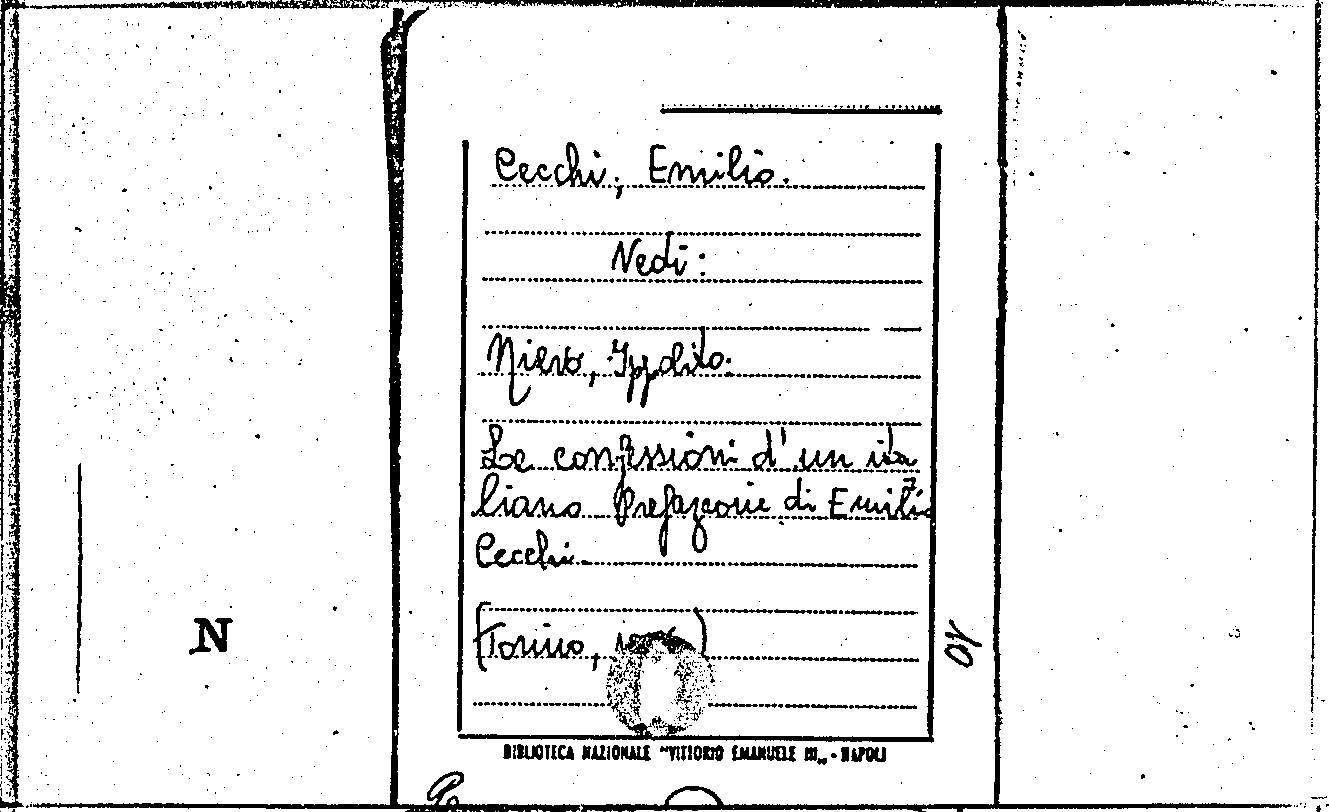 Cecchi, Emilio.
Vedi:
Nievo, Ippolito.
Le confessioni d'un ita
liano Prefazione di Emilio
Cecchi.
(Torino, )
N
10
BIBLIOTECA NAZIONALE "VITTORIO EMANUELE III„ - NAPOLI